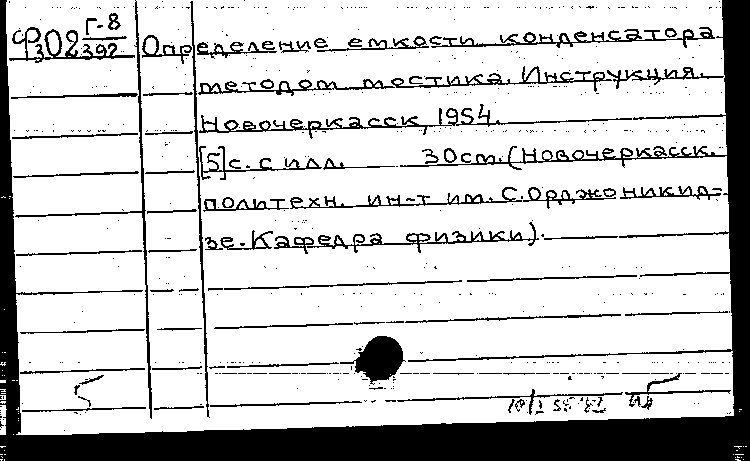 Г-8
Ф302 392
Определение емкости конденсатора
методом мостика. Инструкция.
Новочеркасск, 1954.
[5]с. с илл. 30см. (Новочеркасск.
политехн. ин-т им. С. Орджоникид=
зе. Кафедра физики).
5